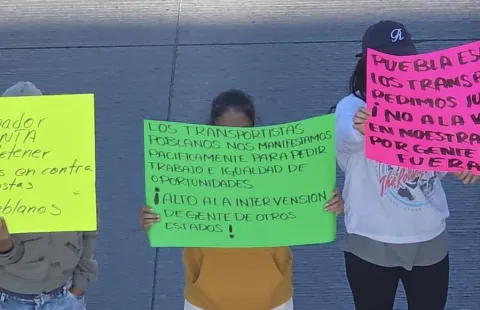 ador
NTA
etener
s en contra
stas
blanos
LOS TRANSPORTISTAS
POBLANOS NOS MANIFESTAMOS
PACIFICAMENTE PARA PEDIR
TRABAJO E IGUALDAD DE
OPORTUNIDADES
¡ALTO A LA INTERVENSION
DE GENTE DE OTROS
ESTADOS !
PUEBLA ES
LOS TRANSP
PEDIMOS JU
¡NO A LA V
EN NUESTRA
POR GENTE
FUERA